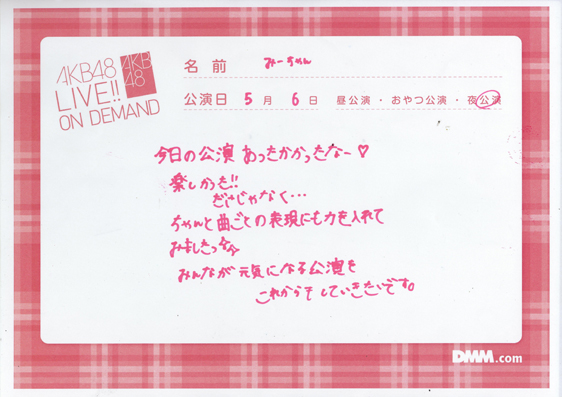 AKB48
LIVE!!
ON DEMAND
AKB
48
名前 みーちゃん
公演日 5月6日 昼公演・おやつ公演・夜公演
今日の公演 あったかかったなー♡
楽しかった!!
だけじゃなく…
ちゃんと曲ごとの表現にも力を入れて
みましたっ
みんなが元気になる公演を
これからもしていきたいです。
DMM.com